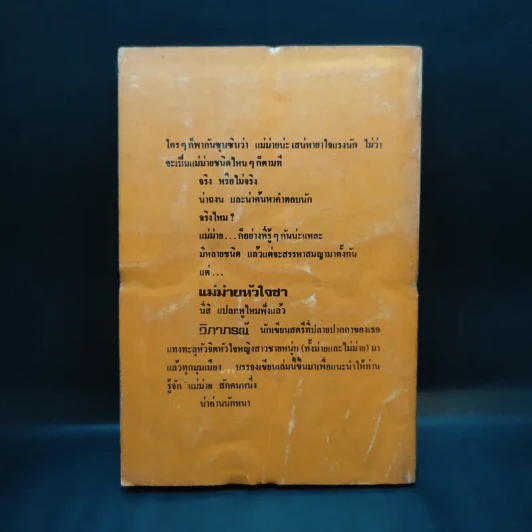 ใครๆ ก็พากันซุบซิบว่า แม่ม่ายน่ะ เสน่หายาใจแรงนัก ไม่ว่า
จะเป็นแม่ม่ายชนิดไหนๆ ก็ตามที
จริง หรือไม่จริง
น่าฉงน และน่าค้นหาคำตอบนัก
จริงไหม?
แม่ม่าย...ก็อย่างที่รู้ๆ กันน่ะแหละ
มีหลายชนิด แล้วแต่จะสรรหาสมญามาตั้งกัน
แต่...
แม่ม่ายหัวใจชา
นี่สิ แปลกหูไหมพึ่งแล้ว
วิภาภรณ์ นักเขียนสตรีที่ปลายปากกาของเธอ
แทงทะลุหัวจิตหัวใจหญิงสาวชายหนุ่ม (ทั้งม่ายและไม่ม่าย) มา
แล้วทุกมุมเมือง บรรจงเขียนเล่มนี้ขึ้นมาเพื่อแนะนำให้ท่าน
รู้จัก แม่ม่าย สักคนหนึ่ง
น่าอ่านนักหนา